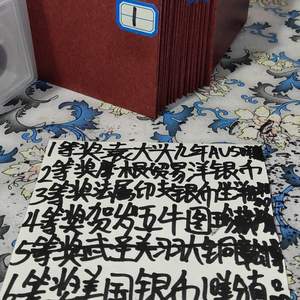 1
1等奖袁大头九年AU5
2等奖摩根贸易洋银币
3等奖法属印支银币坐洋
4等奖贺岁五牛图珍藏
5等奖武圣关羽大铜章
等奖美国银币1盎